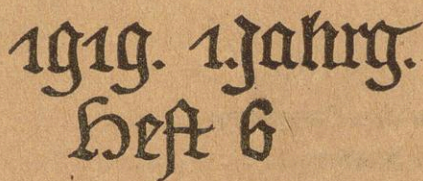 1919. 1. Jahrg.
Heft 6